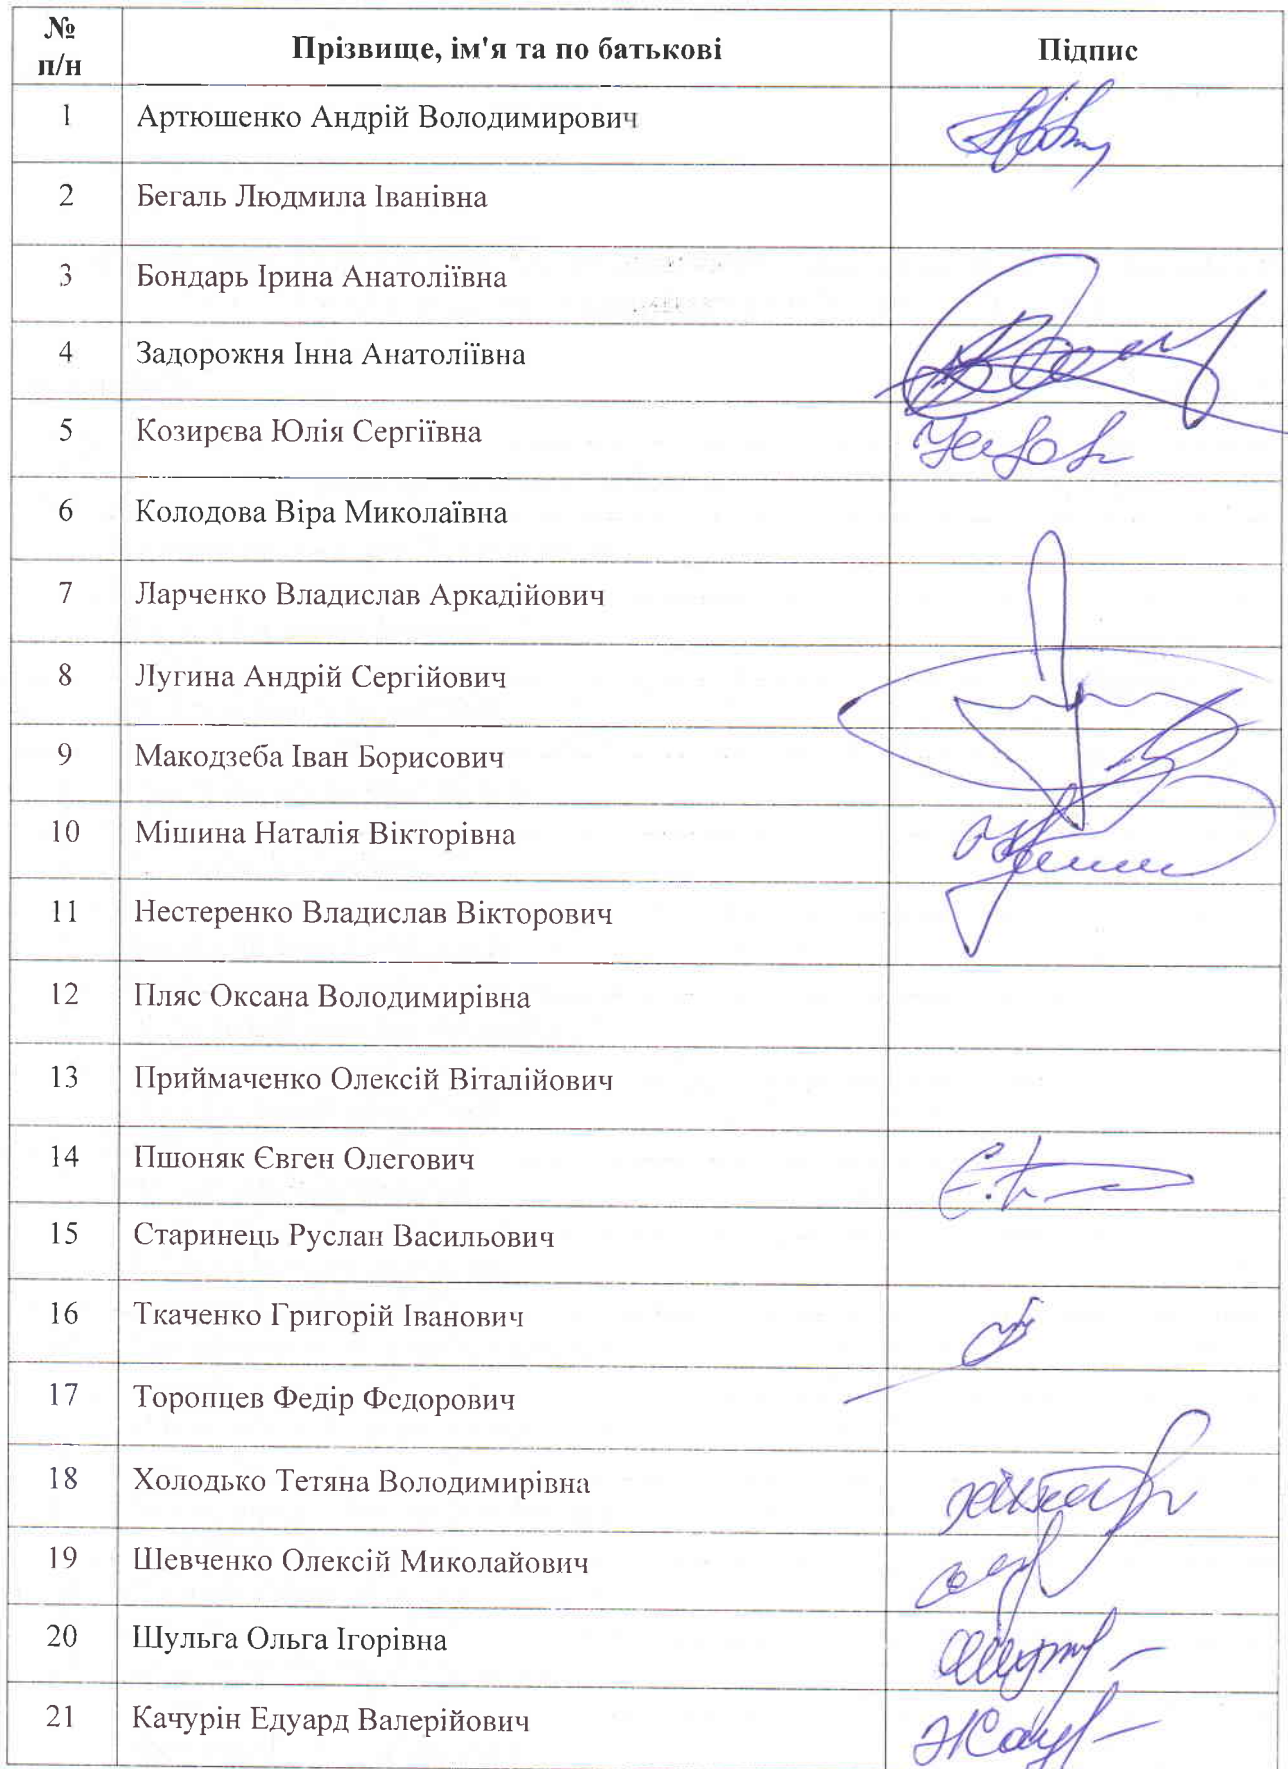 № п/н Прізвище, ім'я та по батькові Підпис
1 Артюшенко Андрій Володимирович
2 Бегаль Людмила Іванівна
3 Бондарь Ірина Анатоліївна
4 Задорожня Інна Анатоліївна
5 Козирєва Юлія Сергіївна
6 Колодова Віра Миколаївна
7 Ларченко Владислав Аркадійович
8 Лугина Андрій Сергійович
9 Макодзеба Іван Борисович
10 Мішина Наталія Вікторівна
11 Нестеренко Владислав Вікторович
12 Пляс Оксана Володимирівна
13 Приймаченко Олексій Віталійович
14 Пшоняк Євген Олегович
15 Старинець Руслан Васильович
16 Ткаченко Григорій Іванович
17 Торопцев Федір Федорович
18 Холодько Тетяна Володимирівна
19 Шевченко Олексій Миколайович
20 Шульга Ольга Ігорівна
21 Качурін Едуард Валерійович